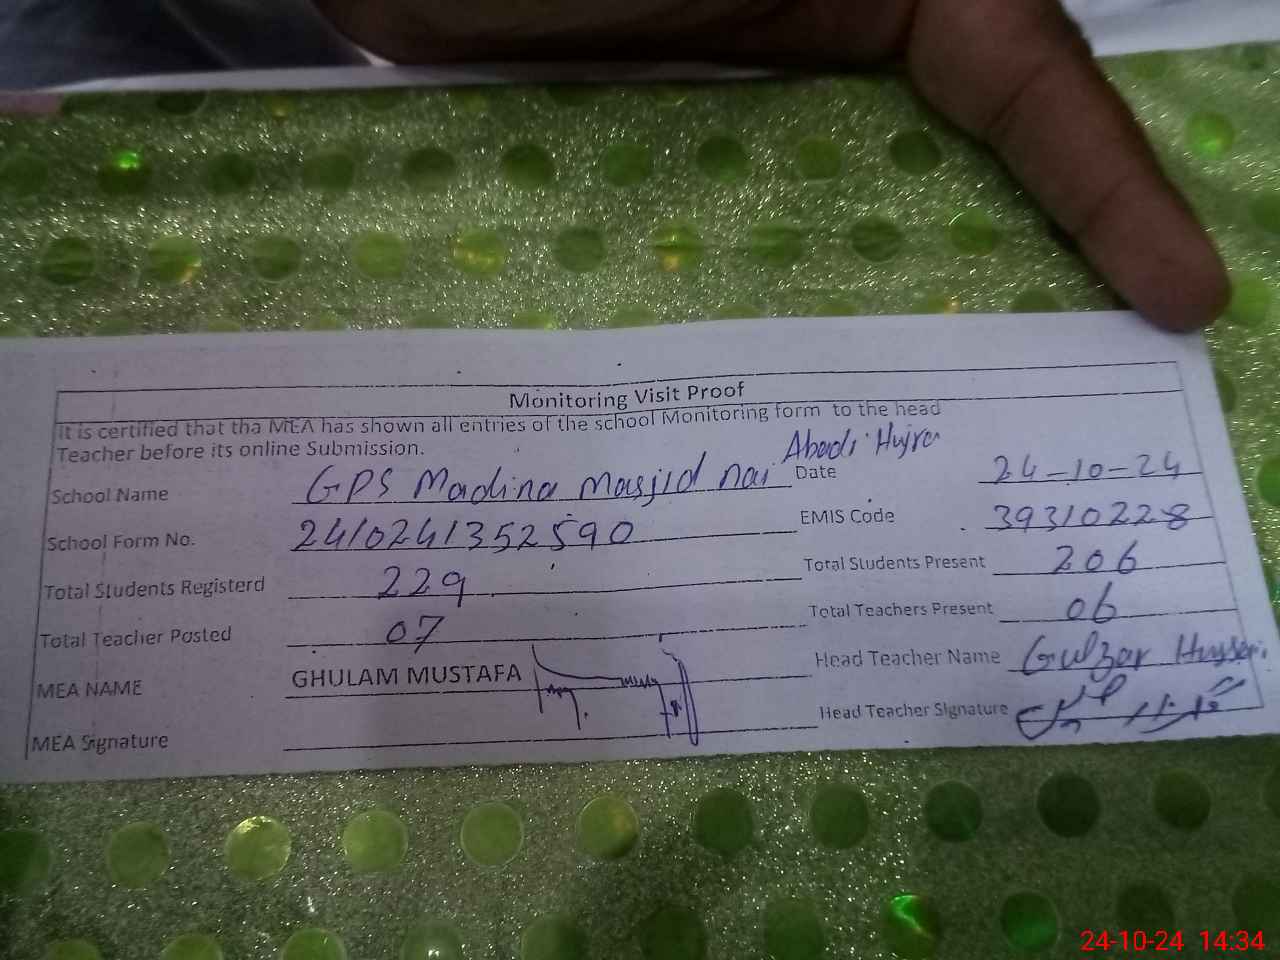 Monitoring Visit Proof
It is certified that tha MEA has shown all entries of the school Monitoring form to the head
Teacher before its online Submission.
School Name GPS Madina Masjid nai Abadi Hujra Date 24-10-24
School Form No. 2410241352590 EMIS Code 39310228
Total Students Registerd 229 Total Students Present 206
Total Teacher Posted 07 Total Teachers Present 06
MEA NAME GHULAM MUSTAFA Head Teacher Name Gulzar Hussain
MEA Signature Head Teacher Signature
24-10-24 14:34